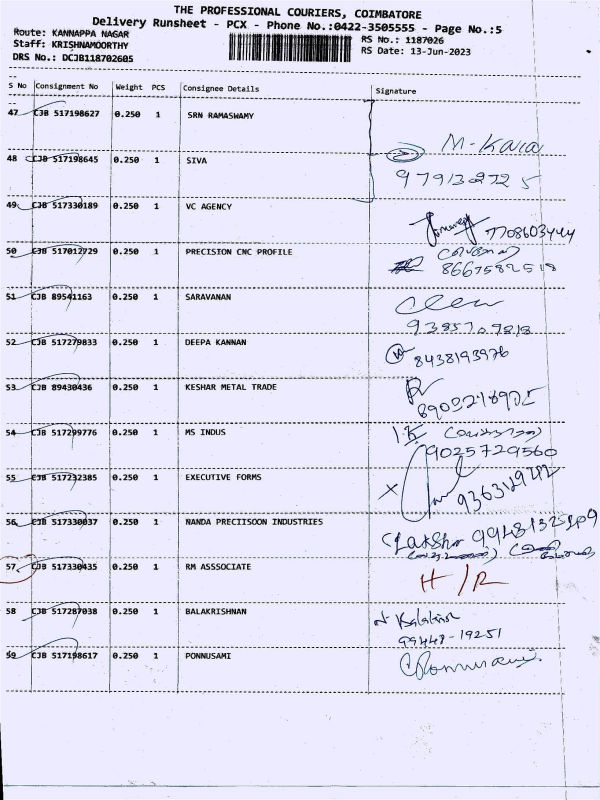 THE PROFESSIONAL COURIERS, COIMBATORE
Delivery Runsheet - PCX - Phone No.:0422-3505555 - Page No.:5
Route: KANNAPPA NAGAR
RS No.: 1187026
Staff: KRISHNAMOORTHY
RS Date: 13-Jun-2023
DRS No.: DCJB118702605
S No Consignment No Weight PCS Consignee Details Signature
47 CJB 517198627 0.250 1 SRN RAMASWAMY
M-Kala
48 CJB 517198645 0.250 1 SIVA
49 CJB 517330189 0.250 1 VC AGENCY
7708603444
50 CJB 517012729 0.250 1 PRECISION CNC PROFILE
8667582518
51 CJB 89541163 0.250 1 SARAVANAN
52 CJB 517279833 0.250 1 DEEPA KANNAN
8438193976
53 CJB 89430436 0.250 1 KESHAR METAL TRADE
54 CJB 517299776 0.250 1 MS INDUS
9025729560
55 CJB 517232385 0.250 1 EXECUTIVE FORMS
56 CJB 517330037 0.250 1 NANDA PRECIISOON INDUSTRIES
57 CJB 517330435 0.250 1 RM ASSSOCIATE
H/R
58 CJB 517287038 0.250 1 BALAKRISHNAN
99448-19251
59 CJB 517198617 0.250 1 PONNUSAMI